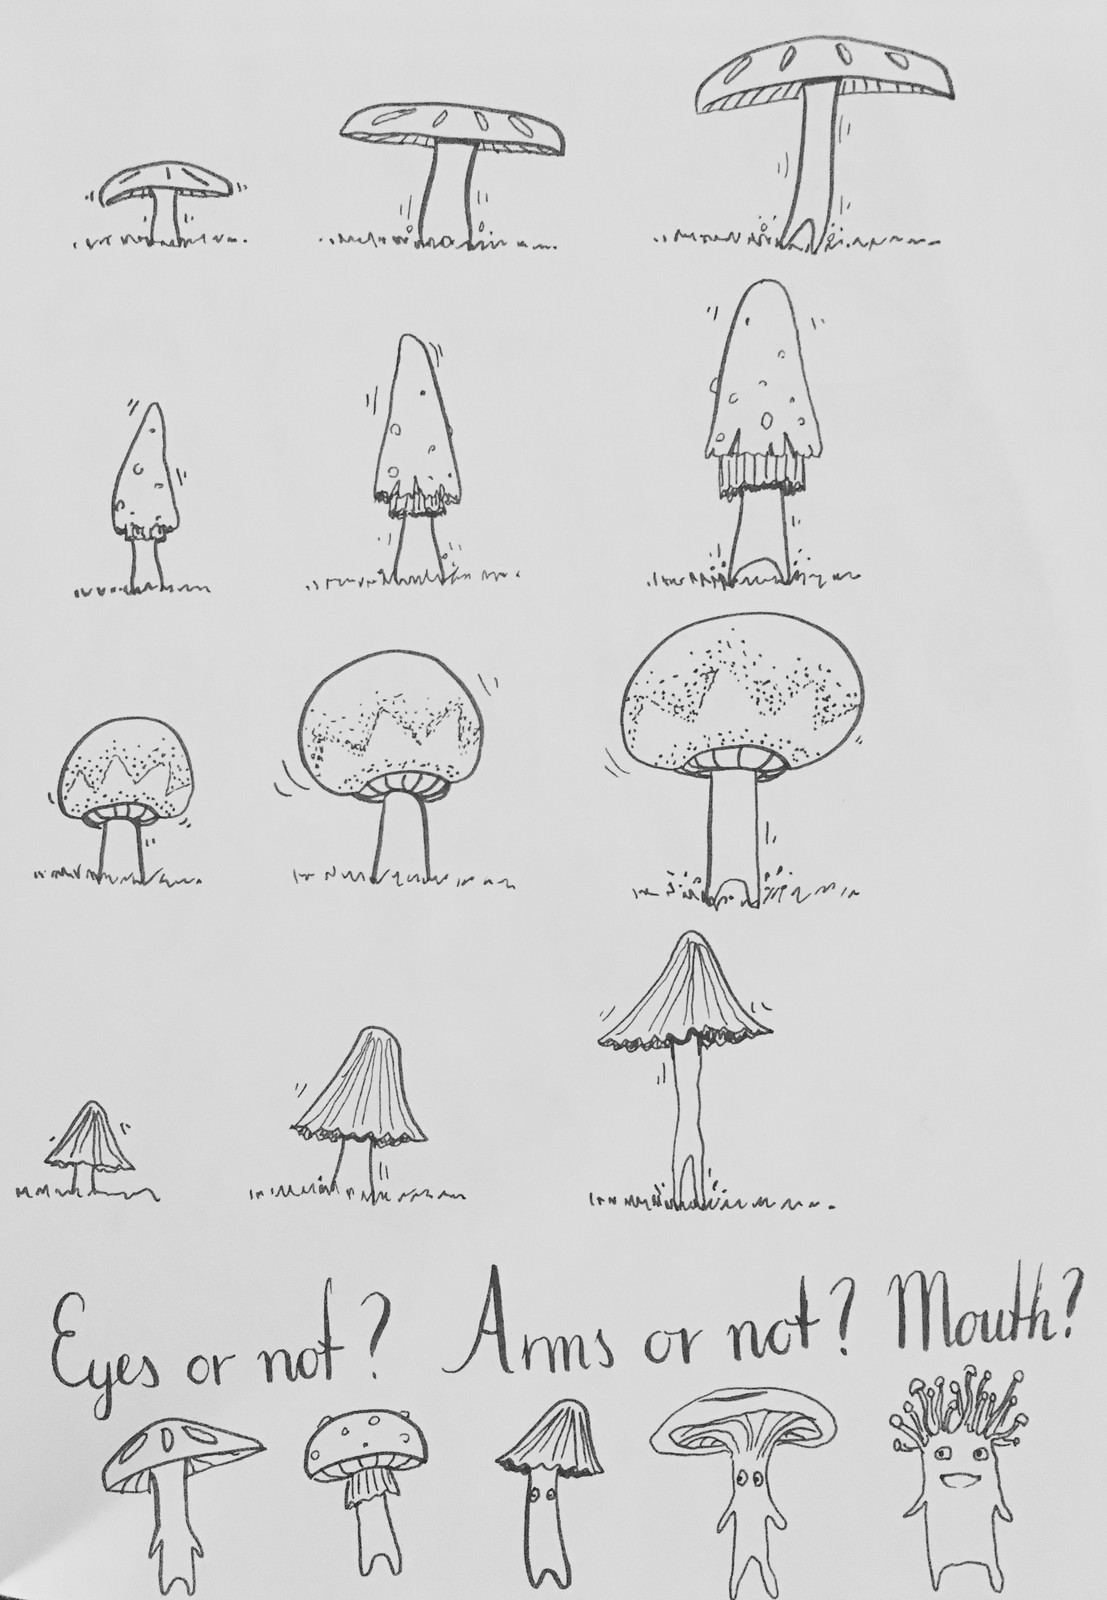 Eyes or not? Arms or not? Mouth?